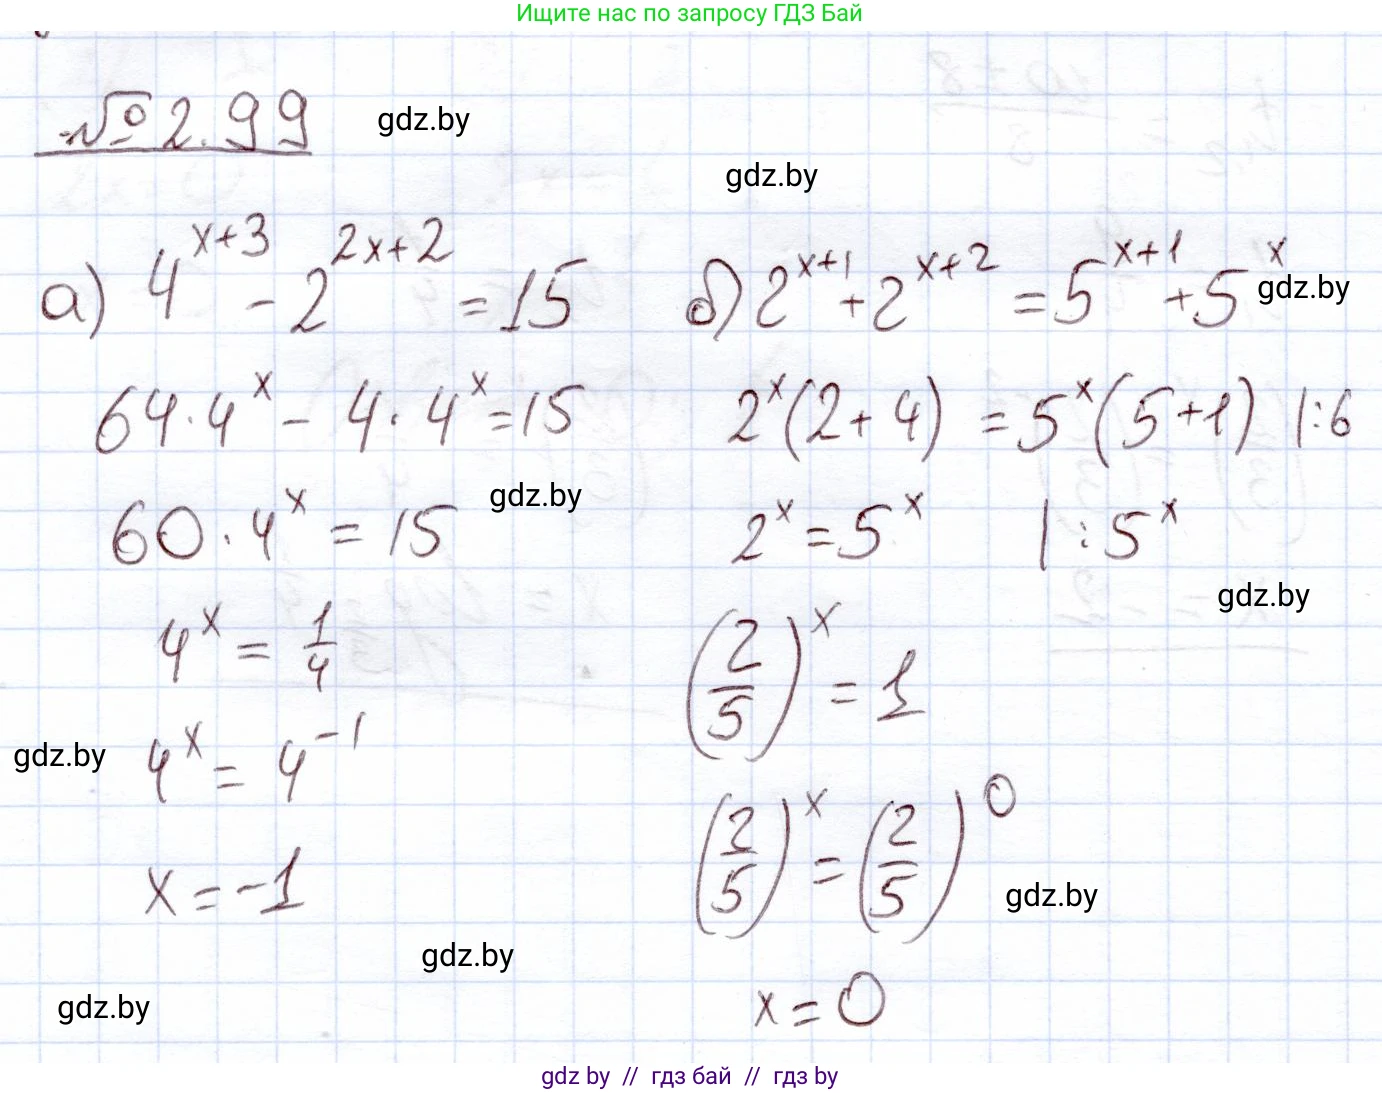 Ищите нас по запросу ГДЗ Бай
№ 2.99
gdz.by
gdz.by
а) 4^(x+3) - 2^(2x+2) = 15
64 · 4^x - 4 · 4^x = 15
gdz.by
60 · 4^x = 15
4^x = 1/4
gdz.by
4^x = 4^(-1)
x = -1
gdz.by
gdz.by
б) 2^(x+1) + 2^(x+2) = 5^(x+1) + 5^x
gdz.by
2^x (2 + 4) = 5^x (5 + 1) |:6
2^x = 5^x |:5^x
gdz.by
(2/5)^x = 1
(2/5)^x = (2/5)^0
gdz.by
x = 0
gdz by // гдз бай // гдз by